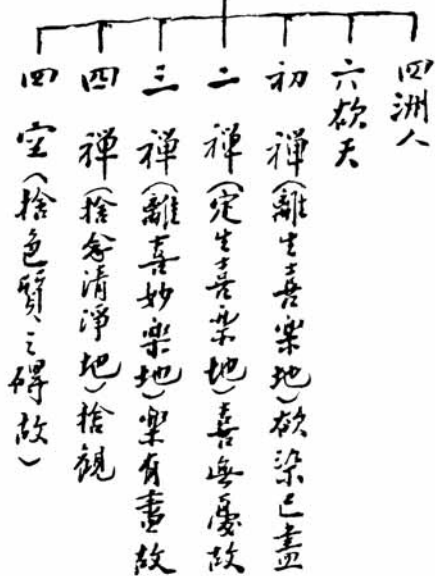 四洲人
六欲天
初禅(離生喜樂地)欲染已盡
二禅(定生喜樂地)喜無憂故
三禅(離喜妙樂地)樂有盡故
四禅(捨念清淨地)捨觀
四空(捨色質之碍故)